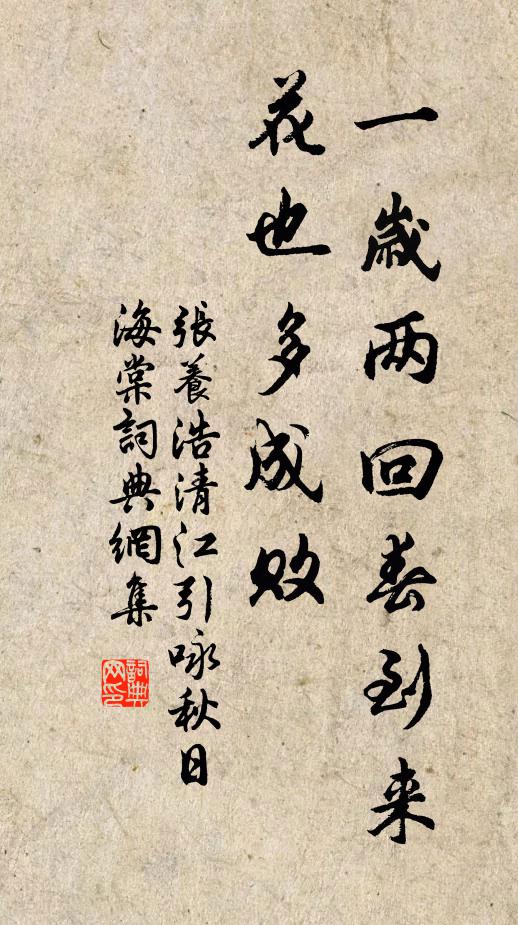 一歲两回春到来
花也多成敗
張養浩清江引咏秋日
海棠詞典網集
詞典
网印